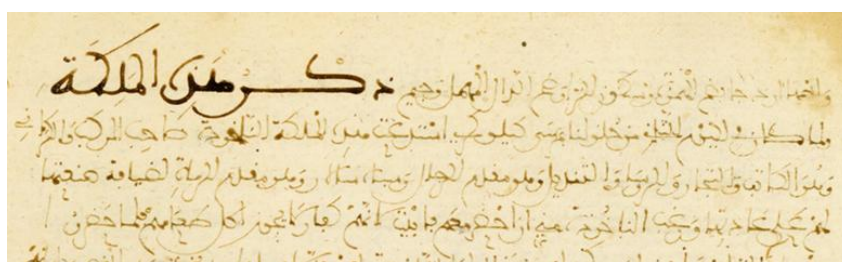 بضم الهمزة وسكون الراء وضم الدال المهمل وجيم ذكر هذه الملكة
ولما كان في اليوم الثاني من حلولنا بمرسى كيلوكري استدعت هذه الملكة الناخودة صاحب المركب والكراني
وهو الكاتب والتجار والروسا والتنديل وهو مقدم الرجال وسباه سالار وهو مقدم الرماة لضيافة صنعتها
لهم على عادتها ورغب الناخودة مني ان احضر معهم فابيت لانهم كفار لا يجوز اكل طعامهم فلما حضروا